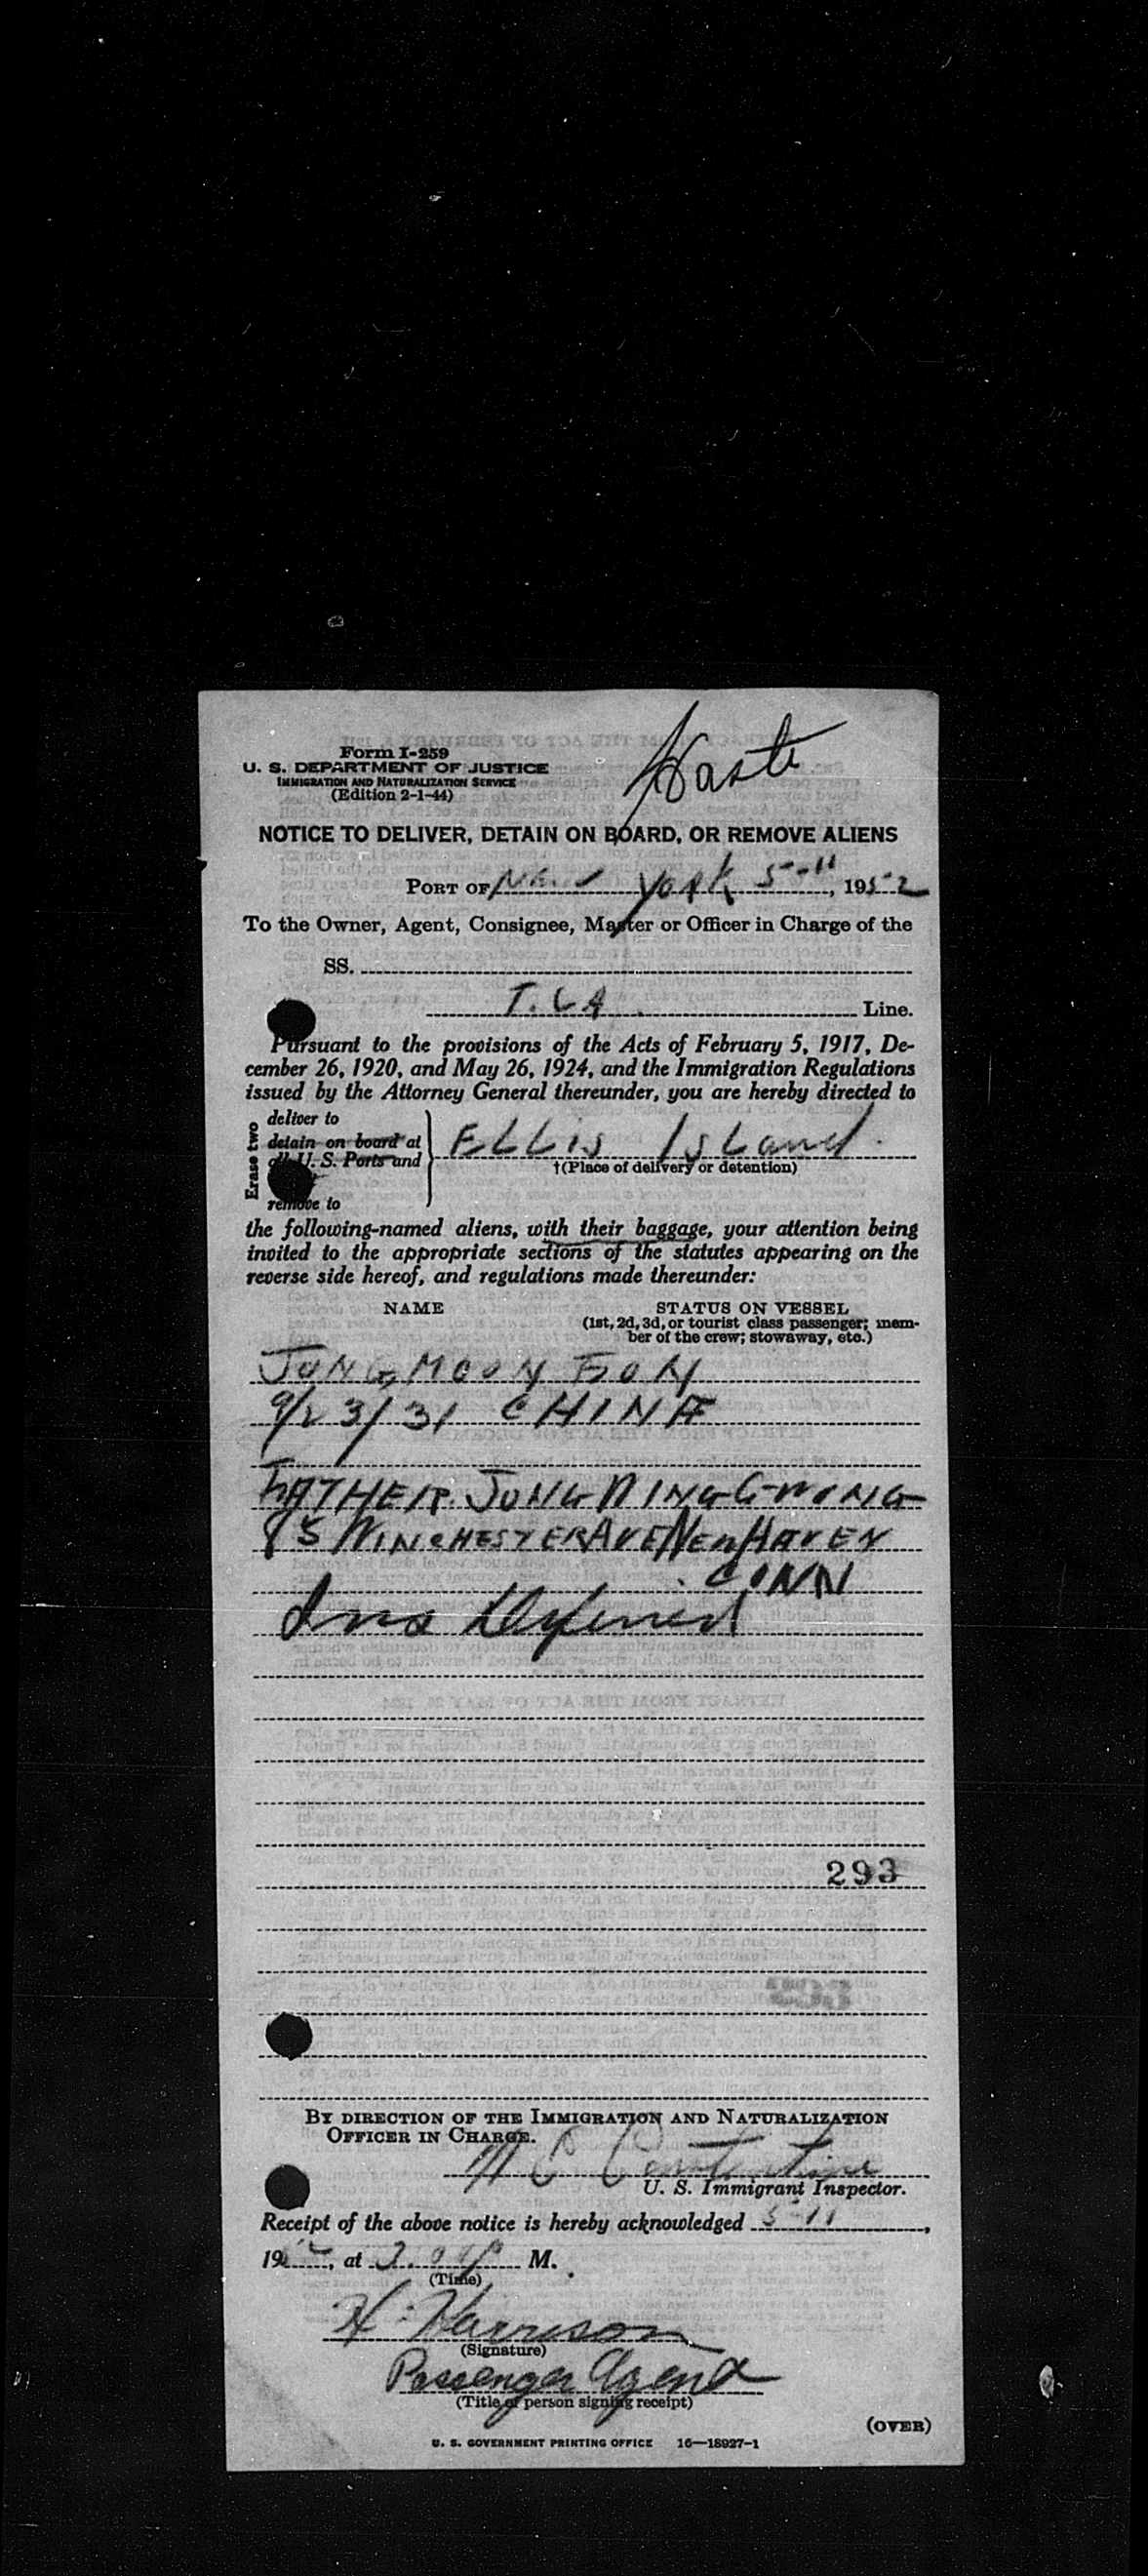 Haste
Form I-259
U. S. DEPARTMENT OF JUSTICE
IMMIGRATION AND NATURALIZATION SERVICE
(Edition 2-1-44)
NOTICE TO DELIVER, DETAIN ON BOARD, OR REMOVE ALIENS
PORT OF New York 5-11, 1952
To the Owner, Agent, Consignee, Master or Officer in Charge of the
SS.
Line.
Pursuant to the provisions of the Acts of February 5, 1917, De-
cember 26, 1920, and May 26, 1924, and the Immigration Regulations
issued by the Attorney General thereunder, you are hereby directed to
Erase two
deliver to
detain on board at
all U. S. Ports and
remove to
ELLIS ISLAND
†(Place of delivery or detention)
the following-named aliens, with their baggage, your attention being
invited to the appropriate sections of the statutes appearing on the
reverse side hereof, and regulations made thereunder:
NAME
STATUS ON VESSEL
(1st, 2d, 3d, or tourist class passenger; mem-
ber of the crew; stowaway, etc.)
JUNG, MOON FON
9/23/31 CHINA
FATHER. JUNG NING
85 WINCHESTER AVE NEW HAVEN
CONN
Ins Deferred
293
BY DIRECTION OF THE IMMIGRATION AND NATURALIZATION
OFFICER IN CHARGE.
U. S. Immigrant Inspector.
Receipt of the above notice is hereby acknowledged 5-11,
1952, at M.
(Time)
H. Harrison
(Signature)
Passenger Agent
(Title of person signing receipt)
(OVER)
U. S. GOVERNMENT PRINTING OFFICE 16—18927-1